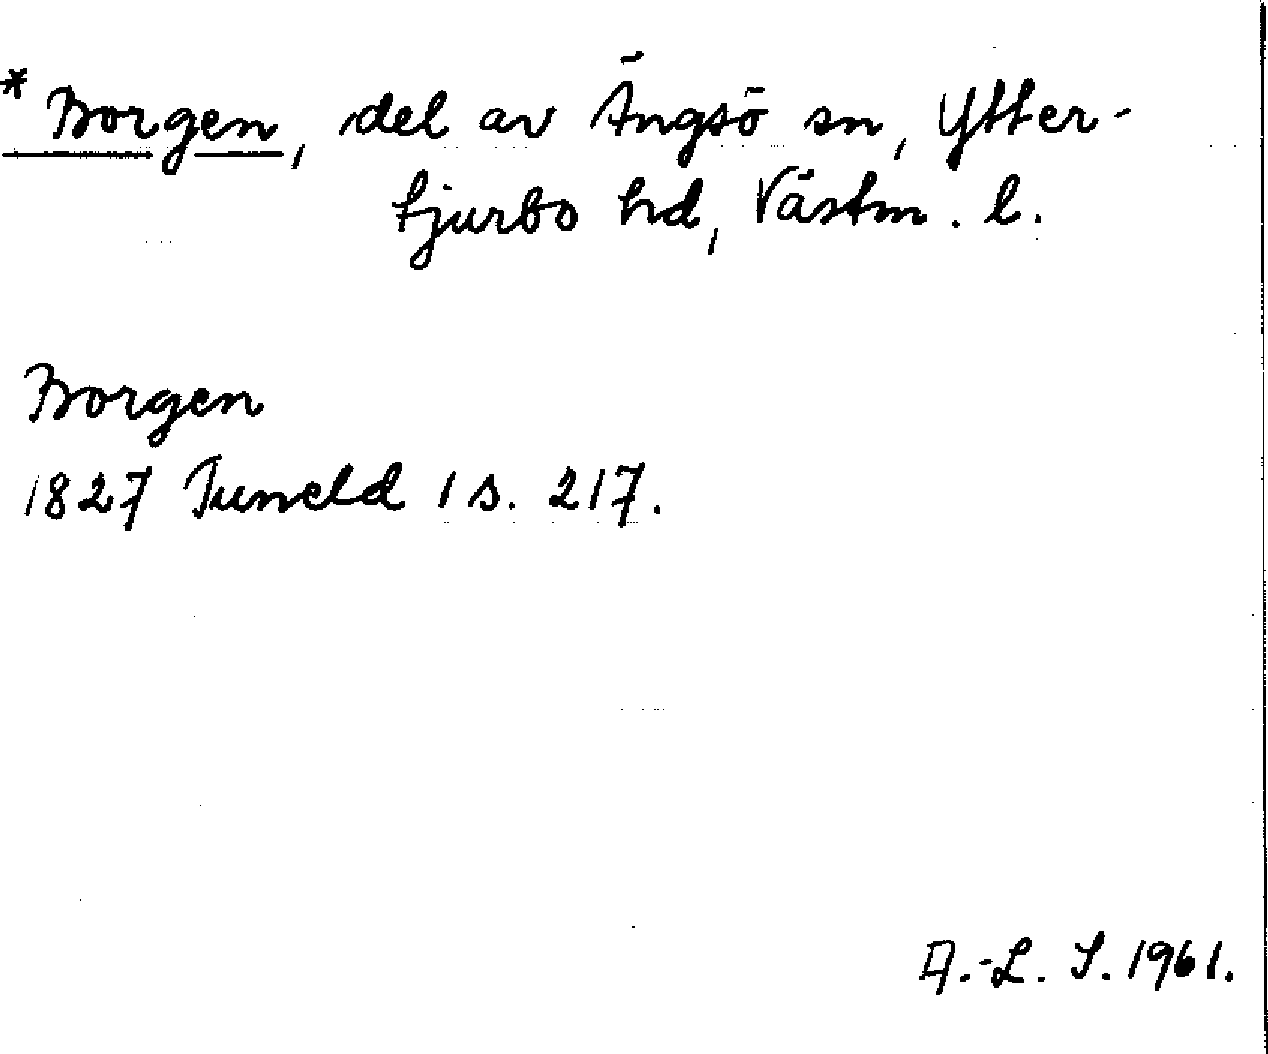 * Borgen, del av Ängsö sn, Ytter-
tjurbo hd, Västm. l.
Borgen
1827 Tuneld 1 s. 217.
A.-L. S. 1961.